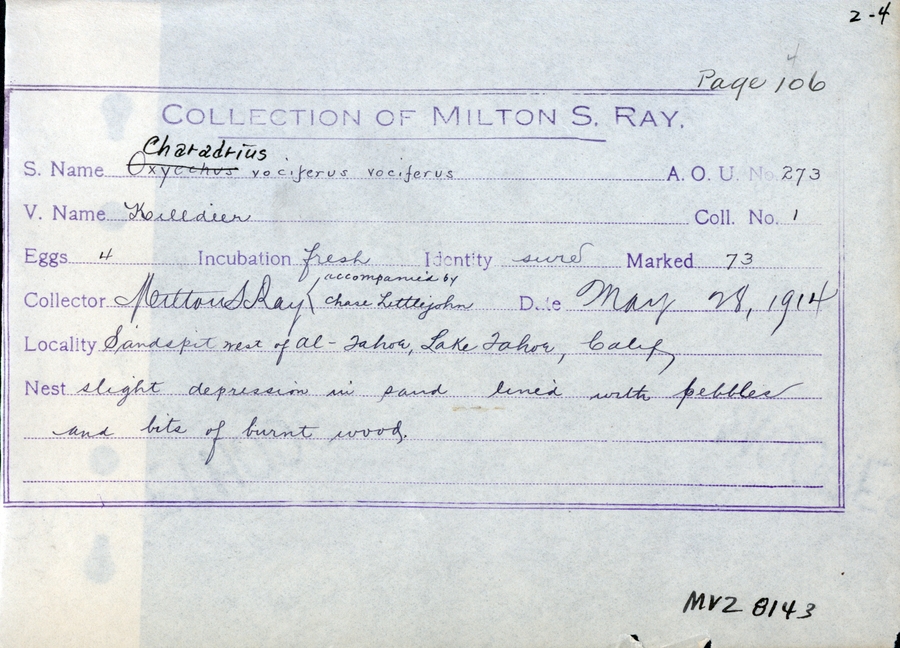 2-4
Page 106
COLLECTION OF MILTON S. RAY.
Charadrius
S. Name Oxyechus vociferus vociferus A. O. U. No. 273
V. Name Killdeer Coll. No. 1
Eggs 4 Incubation fresh Identity sure Marked 73
accompanied by
Collector Milton S Ray ( Chase Littlejohn Date May 28, 1914
Locality Sandspit west of Al-Tahoe, Lake Tahoe, Calif,
Nest slight depression in sand lined with pebbles
and bits of burnt wood.
MVZ 8143